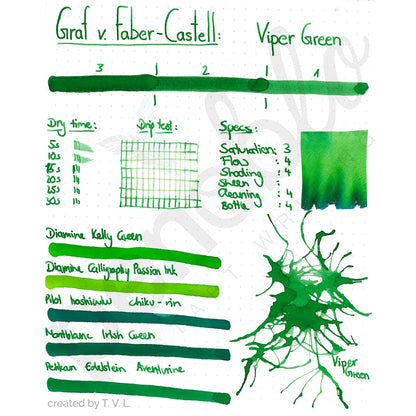 Graf v. Faber-Castell: Viper Green
3 2 1
Dry time: Drip test: Specs:
5s
10s
15s
20s
25s
30s
Saturation: 3
Flow : 4
Shading : 4
Sheen :
Cleaning : 4
Bottle : 4
Diamine Kelly Green
Diamine Calligraphy Passion Ink
Pilot Iroshizuku chiku-rin
Montblanc Irish Green
Pelikan Edelstein Aventurine
Viper Green
created by T. V. L.